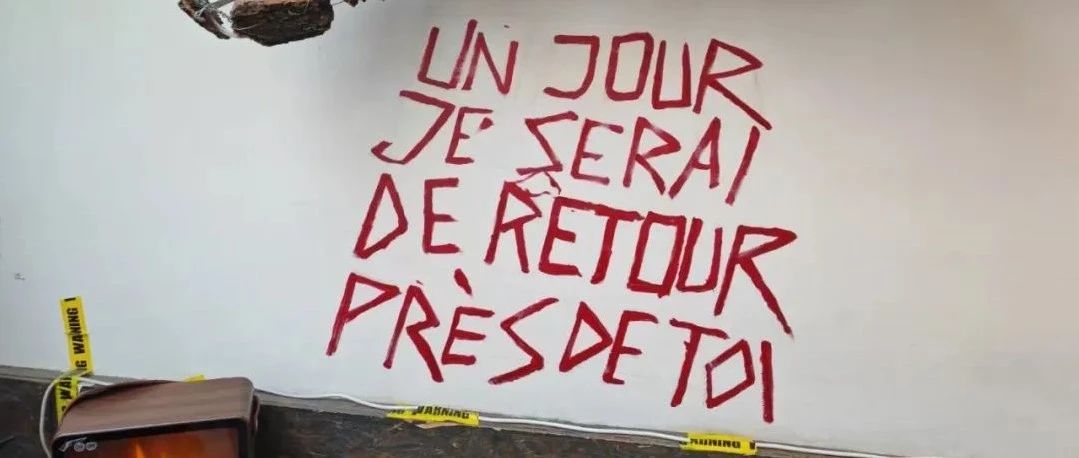 UN JOUR
JE SERAI
DE RETOUR
PRÈS DE TOI
WANING
WARNING